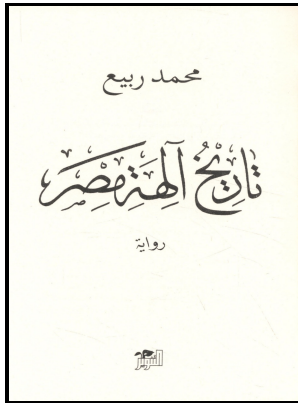 محمد ربيع
تَارِيْخُ آلِهَةِ مِصْرَ
رواية
التنوير